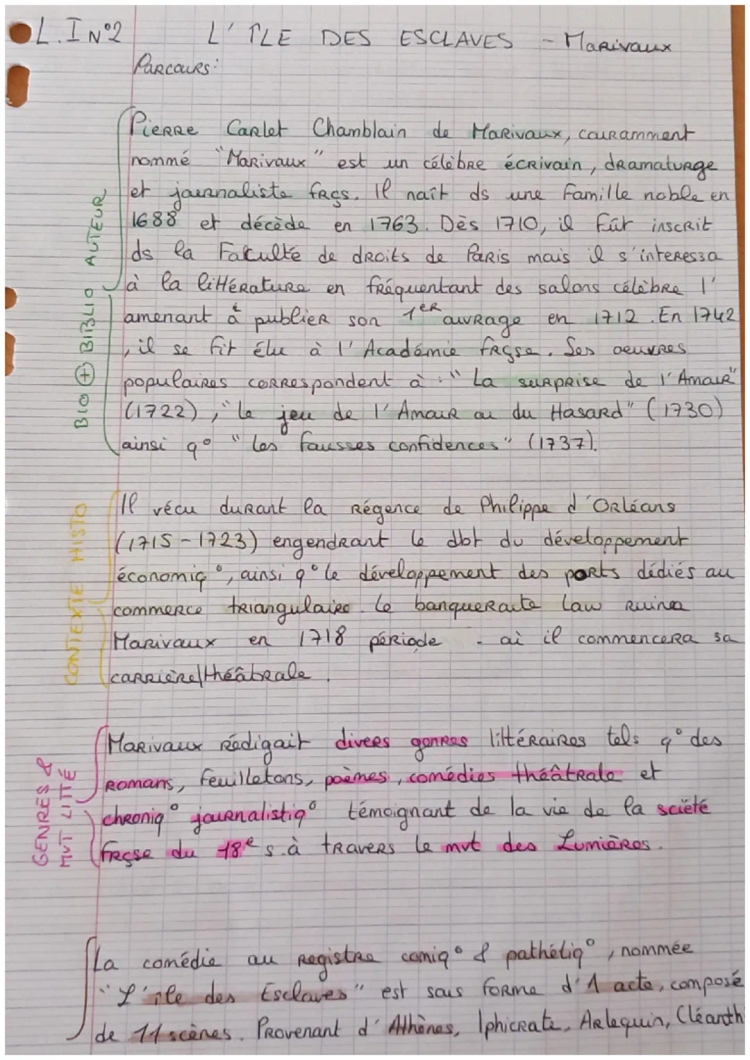 L.I N°2 L'ÎLE DES ESCLAVES - Marivaux
Parcours:
BIO + BIBLIO AUTEUR
Pierre Carlet Chamblain de Marivaux, couramment
nommé "Marivaux" est un célèbre écrivain, dramaturge
et journaliste frçs. Il naît ds une famille noble en
1688 et décède en 1763. Dès 1710, il fût inscrit
ds la Faculté de droits de Paris mais il s'interessa
à la littérature en fréquentant des salons célèbre l'
amenant à publier son 1er ouvrage en 1712. En 1742
, il se fit élu à l'Académie frçse. Ses oeuvres
populaires correspondent à : "La surprise de l'Amour"
(1722), "le jeu de l'Amour ou du Hasard" (1730)
ainsi q° "les fausses confidences" (1737).
CONTEXTE HISTO
Il vécu durant la Régence de Philippe d'Orléans
(1715-1723) engendrant le dbt du développement
économiq°, ainsi q° le développement des ports dédiés au
commerce triangulaire. Le banqueroute Law ruina
Marivaux en 1718 période - où il commencera sa
carrière théâtrale.
GENRES & MVT LITTÉ
Marivaux rédigait divers genres littéraires tels q° des
romans, feuilletons, poèmes, comédies théâtrale et
chroniq° journalistiq° témoignant de la vie de la sciété
frçse du 18e s. à travers le mvt des Lumières.
La comédie au registre comiq° & pathétiq°, nommée
"L'île des Esclaves" est sous forme d'1 acte, composé
de 11 scènes. Provenant d'Athènes, Iphicrate, Arlequin, Cléanth